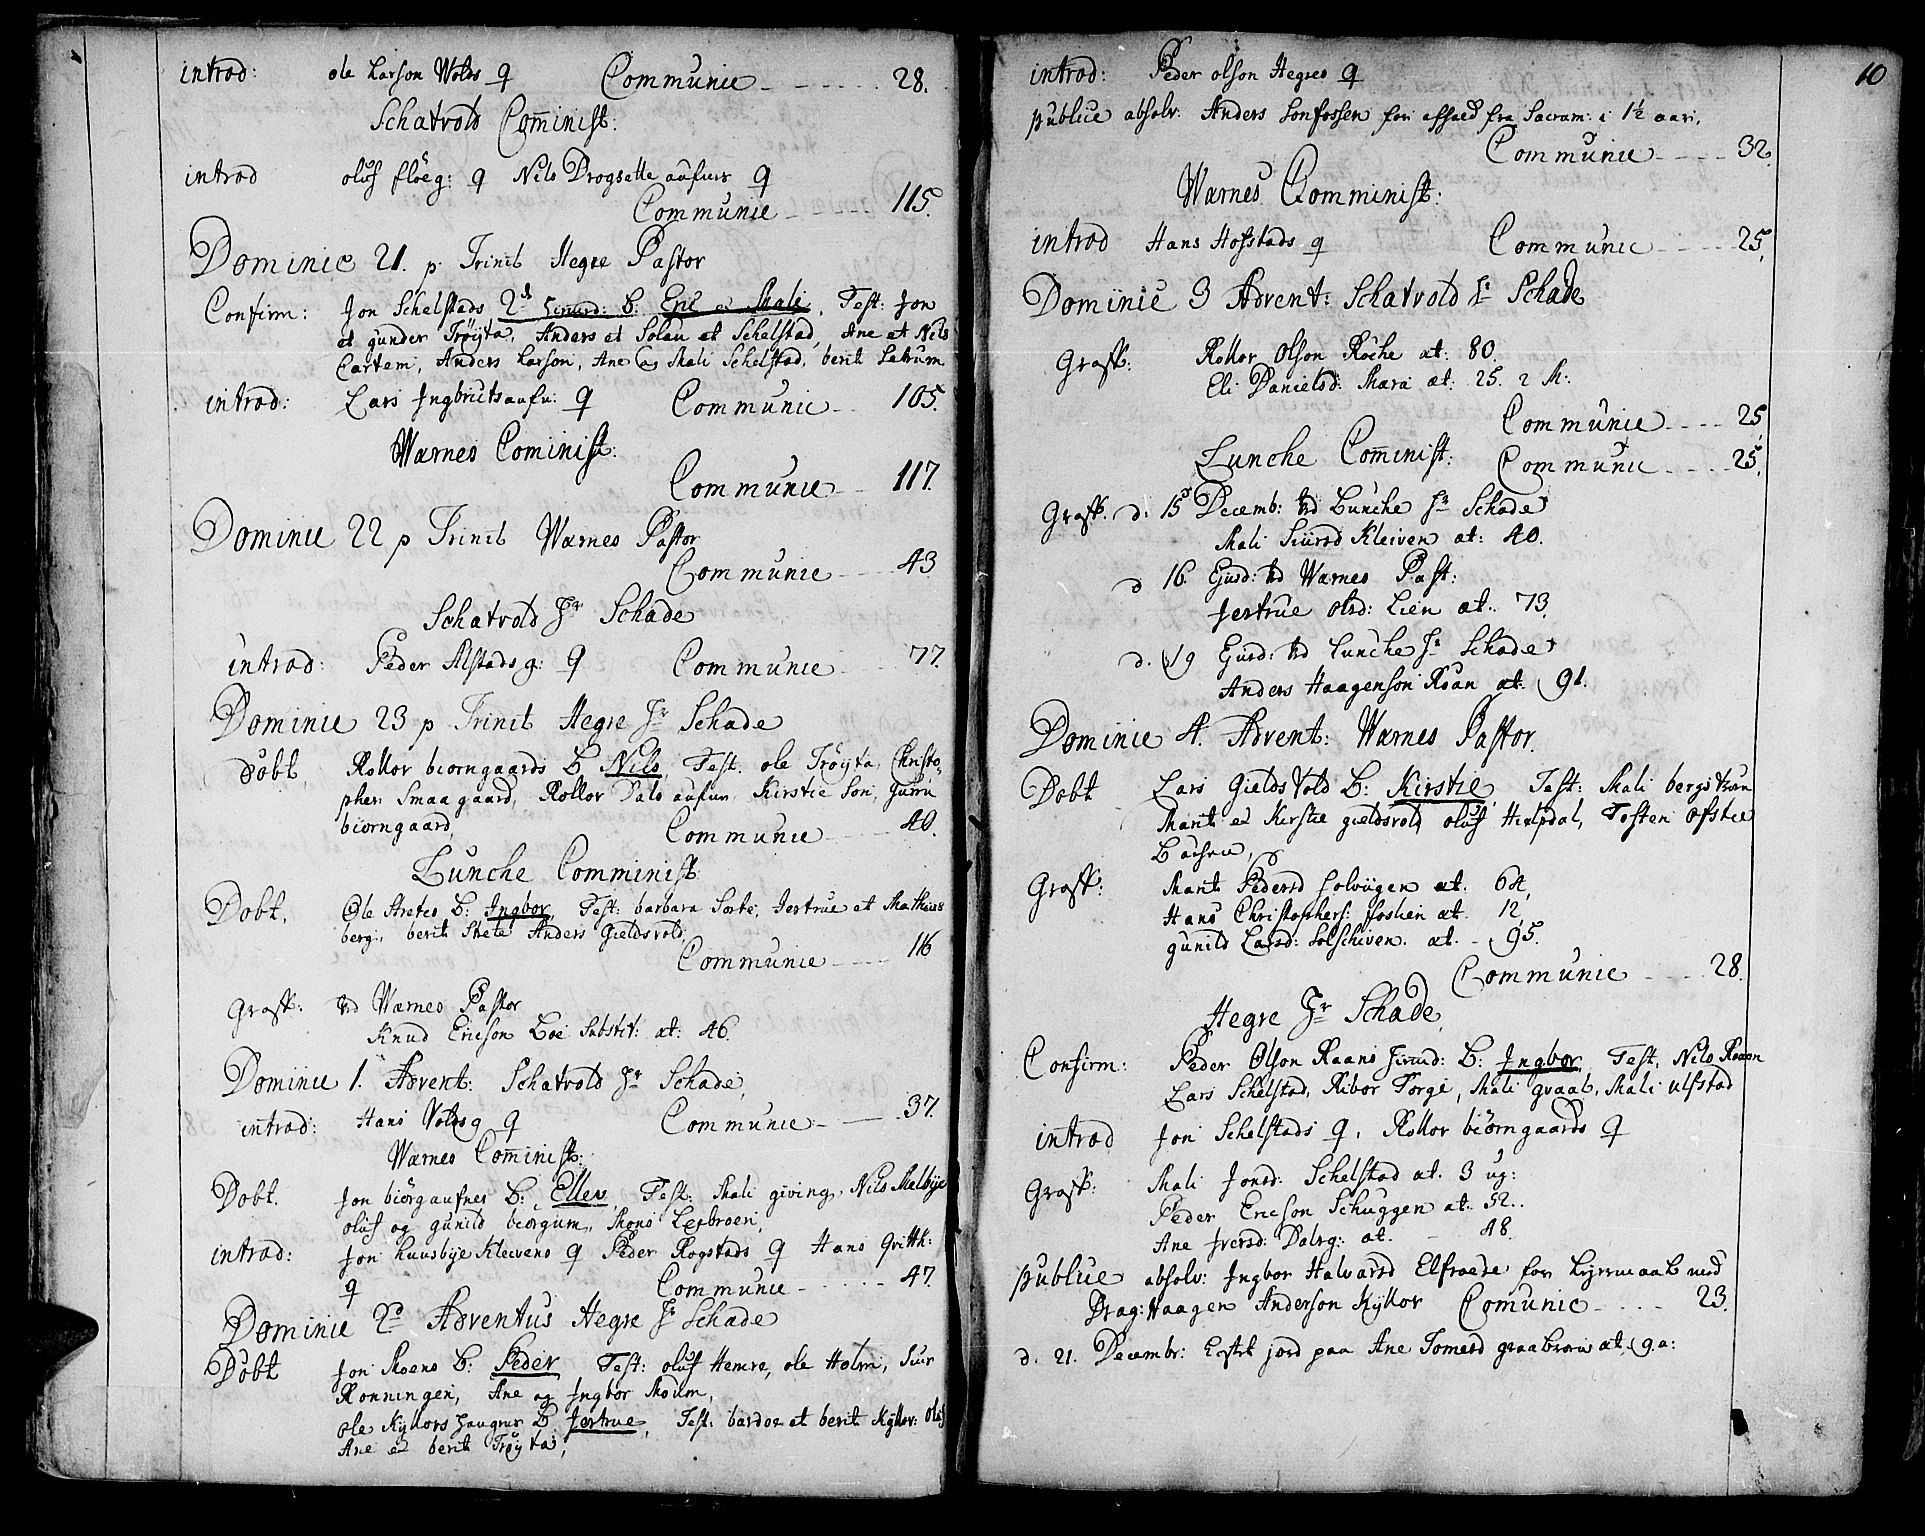 introd: ole Larson Wolds q Communic 28.
Schatvold Com̄inist:
introd oluf fløeg: q Nils Drogsette aufurs q
Communic 115.
Dominic 21. p. Trinit Hegre Pastor
Confirm: Jon Schelstads 2de B: Eric et Mali, Test: Jon
et gunder Trøyta, Anders et Solau et Schelstad, Ane et Nils
Cartem, Anders Larson, Ane Mali Schelstad, berit Latrum
introd: Lars q Communic 105.
Wærnes Cominist:
Communic 117.
Dominic 22 p Trinit Wærnes Pastor
Communic 43
Schatvold Hr Schade
introd: Peder Alstads g: q Communic 77.
Dominic 23 p Trinit Hegre Hr Schade
Døbt Rollor biorngaards B Nils, Test. ole Trøyta, Christo-
pher Smaagaard, Rollor Kirstie Son, Gurru
biorngaard, Communic 40.
Lunche Comminist
Døbt. Ole Stretes B: Ingbor, Test: barbara Sorte, Jertrue et Mathias
berg:, berit Strete Anders Gieldsvold,
Communic 116
Grafk: ved Wærnes Pastor
Knud Ericson Loe Substit: æt: 46.
Dominic 1. Advent: Schatvold Hr Schade,
introd: Hans Voldsg q Communic 37.
Wærnes Com̄inist:
Døbt. Jon biörgaufnes B: Ellen, Test: Mali giving, Nils Melbye
oluf og gunild biorgum, Mons Lerbroen,
introd: Jon Huusbye Kleivens q Peder Rogstads q Hans
q Communic 47.
Dominic 2do Adventus Hegre Hr Schade
Døbt Jon Moens B: Peder Test: oluf Hemre, ole Holm, Siur
Ronningen, Ane og Ingbor Moum,
ole Kyllors B Jertrue, Test: bardoe et berit Kyllor: Oluf
Ane et berit Trøyta,
10
introd: Peder olson Hegres q
publice absolv: Anders Sonfossen for affhæld fra Sacram: i 1½ aar.
Communic 32.
Wærnes Comminist:
introd Hans Hofstads q Communic 25.
Dominic 3 Advent: Schatvold Hr Schade
Grafk: Rollor Olson Röche æt: 80.
Eli Danielsd: Mæra æt: 25. 2 M:
Communic 25,
Lunche Com̄inist: Communic 25.
Grafk. d. 15de Decemb: ved Lunche Hr Schade
Mali Siursd Kleiven æt: 40.
d 16. Ejusd: ved Wærnes Past:
Jertrue olsd: Lien æt: 73.
d. 19 Ejusd: ved Lunche Hr Schade
Anders Haagenson Roan æt: 91.
Dominic 4. Advent: Wærnes Pastor.
Døbt Lars Gields Vold B: Kirstie, Test: Mali
Marit et Kirstie gieldsvold, oluf Hielpdal, Tosten ofstie
Grafk: Marit Pedersd æt: 64,
Hans Christophers: æt: 12,
gunild Larsd: æt: 95.
Communic 28.
Hegre Hr Schade,
Confirm: Peder Olson Raans B: Ingbor, Test, Nils Raaen
Lars Schelstad, Ribor Forge, Mali graat, Mali ulfstad
introd Jon Schelstads q, Rollor biörngaards q
Grafk: Mali Jonsd: Schelstad æt: 3 ug:
Peder Ericson Schuggen æt: 52.
Ane Iversd: Dalsg: æt. 48.
publice absolv: Ingbor Halvarsd Elfraede for Leyermaal med
Drag: Haagen Anderson Kyllor Comunic 23.
d. 21. Decembr: jord paa Ane Tomesd graabroen æt. 9 a: